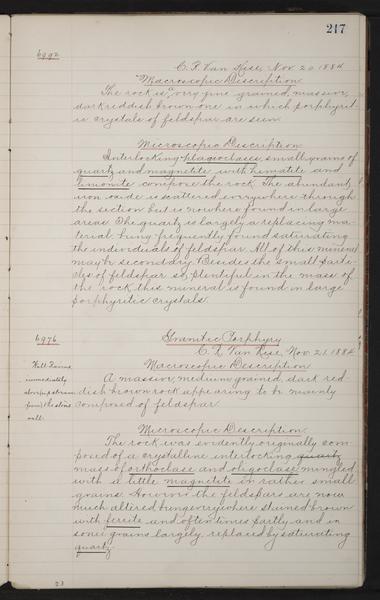 217
6992
C. R. Van Hise, Nov. 20. 1884
Macroscopic Description.
The rock is a very fine grained, massive,
dark reddish brown one in which porphyrit-
ic crystals of feldspar are seen.
Microscopic Description
Interlocking plagioclases, small grains of
quartz and magnetite with hematite and
limonite compose the rock. The abundant
iron oxide is scattered everywhere through
the section but is nowhere found in large
areas. The quartz is largely a replacing ma-
terial being frequently found saturating
the individuals of feldspar. All of this mineral
may be secondary. Besides the small parti-
cles of feldspar so plentiful in the mass of
the rock, this mineral is found in large
porphyritic crystals.
6976
Granitic Porphyry
C. R. Van Hise, Nov. 21. 1884
immediately
above upstream
from the stone
wall.
Macroscopic Description
A massive, medium grained, dark red
dish brown rock appearing to be mainly
composed of feldspar.
Microscopic Description.
The rock was evidently originally com-
posed of a crystalline interlocking quartz
mass of orthoclase and oligoclase mingled
with a little magnetite in rather small
grains. However the feldspars are now
much altered being everywhere stained brown
with ferrite and often times partly and in
some grains largely replaced by saturating
quartz.
23